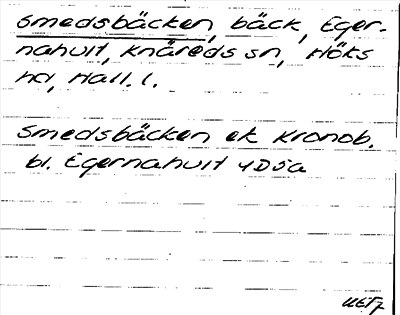 Smedsbäcken, bäck, Eger-
nahult, Knäreds sn, Höks
hd, Hall. l.
Smedsbäcken ek kronob.
bl. Egernahult 4D5a